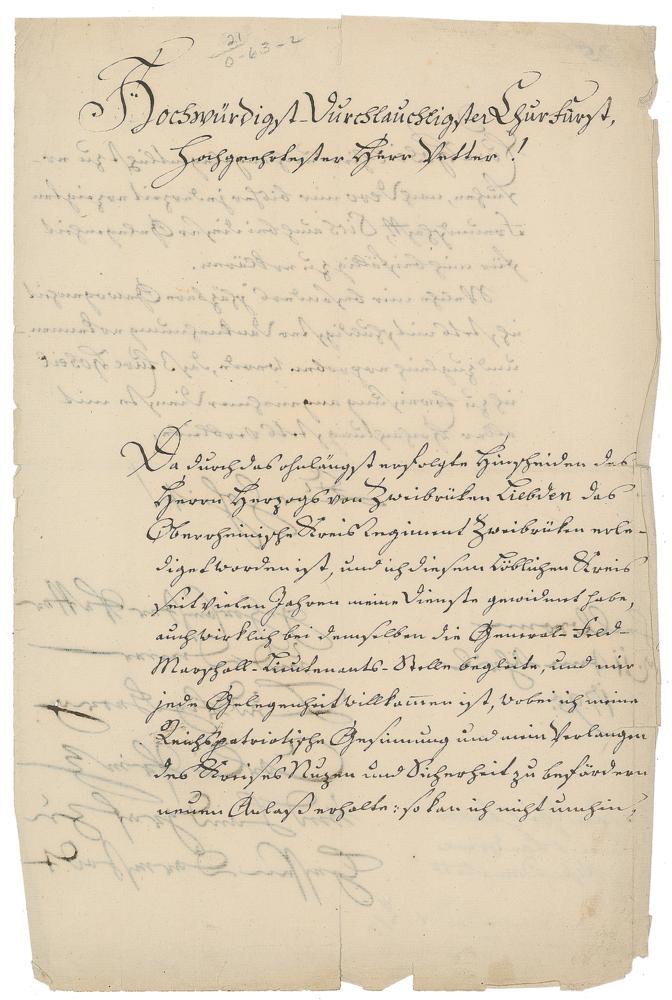 21
0-63-2
Hochwürdigst-Durchlauchtigster Churfürst,
Hochgeehrtester Herr Vetter!
Da durch das ohnlängst erfolgte Hinscheiden des
Herrn Herzogs von Zweibrüken Liebden das
Oberrheinische Kreis Regiment Zweibrüken erle-
diget worden ist, und ich diesem Löblichen Kreis
seit vielen Jahren meine Dienste gewidmet habe,
auch wirklich bei demselben die General-Feld-
Marschall-Lieutenants-Stelle begleite, und mir
jede Gelegenheit willkom̅en ist, wobei ich meine
Reichspatriotische Gesinnung und mein Verlangen
des Kreises Nuzen und Sicherheit zu befördern
neuen Anlaß erhalte: so kan ich nicht umhin,